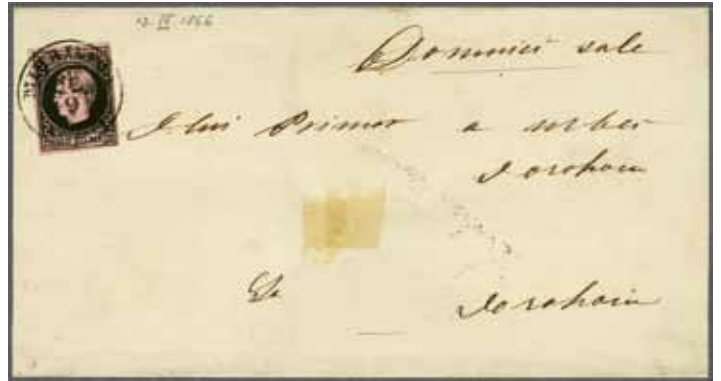 12 IX 1866
Domniei sale
D lui Primar a urbei
Dorohoiu
9
La
Dorohoiu